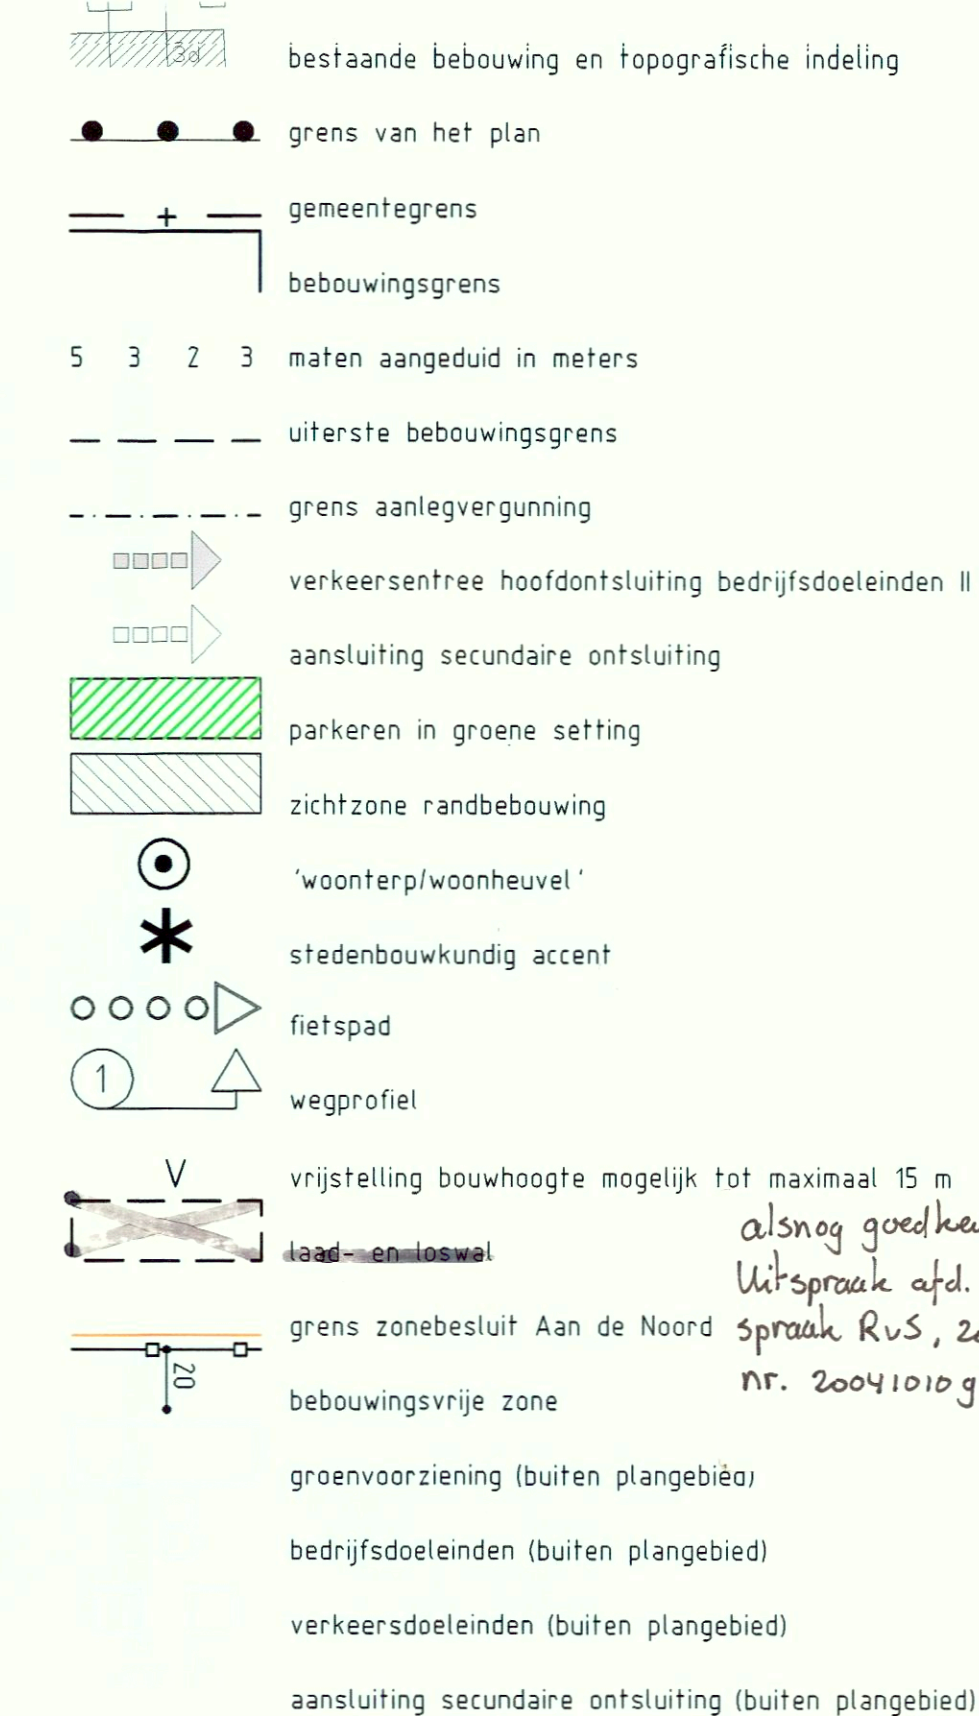 3d bestaande bebouwing en topografische indeling
grens van het plan
+ gemeentegrens
bebouwingsgrens
5 3 2 3 maten aangeduid in meters
uiterste bebouwingsgrens
grens aanlegvergunning
verkeersentree hoofdontsluiting bedrijfsdoeleinden II
aansluiting secundaire ontsluiting
parkeren in groene setting
zichtzone randbebouwing
'woonterp/woonheuvel'
stedenbouwkundig accent
fietspad
1 wegprofiel
V vrijstelling bouwhoogte mogelijk tot maximaal 15 m
alsnog
laad- en loswal
Uitspraak afd.
grens zonebesluit Aan de Noord
spraak RvS,
20
nr. 20041010
bebouwingsvrije zone
groenvoorziening (buiten plangebied)
bedrijfsdoeleinden (buiten plangebied)
verkeersdoeleinden (buiten plangebied)
aansluiting secundaire ontsluiting (buiten plangebied)